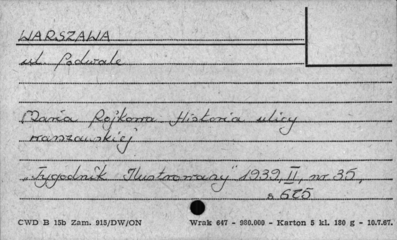 WARSZAWA
ul. Podwale
Maria Rojkowa Historia ulicy
warszawskiej
„Tygodnik Ilustrowany" 1939, II, nr. 35,
s 675
CWD B 15b Zam. 915/DW/ON Wrak 647 - 900.000 - Karton 5 kl. 180 g - 10.7.67.